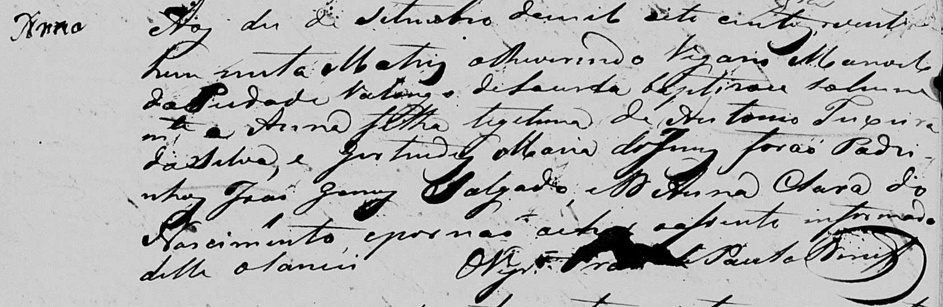 Anna
Aos des de Setembro de mil sete centos, e vente
hum nesta Matriz o Reverendo Vigario Manoel
da Piedade Valongo de Lacerda baptizou solemne
mte a Anna filha legitima de Antonio Teixeira
da Silva, e Gertrudes Maria de Jesus forão Padri-
nhos João Gomes Salgado, e D. Anna Clara do
Nascimento, e por não achar o assento informado
delle o lancei O Vigr.o Fran de Paula